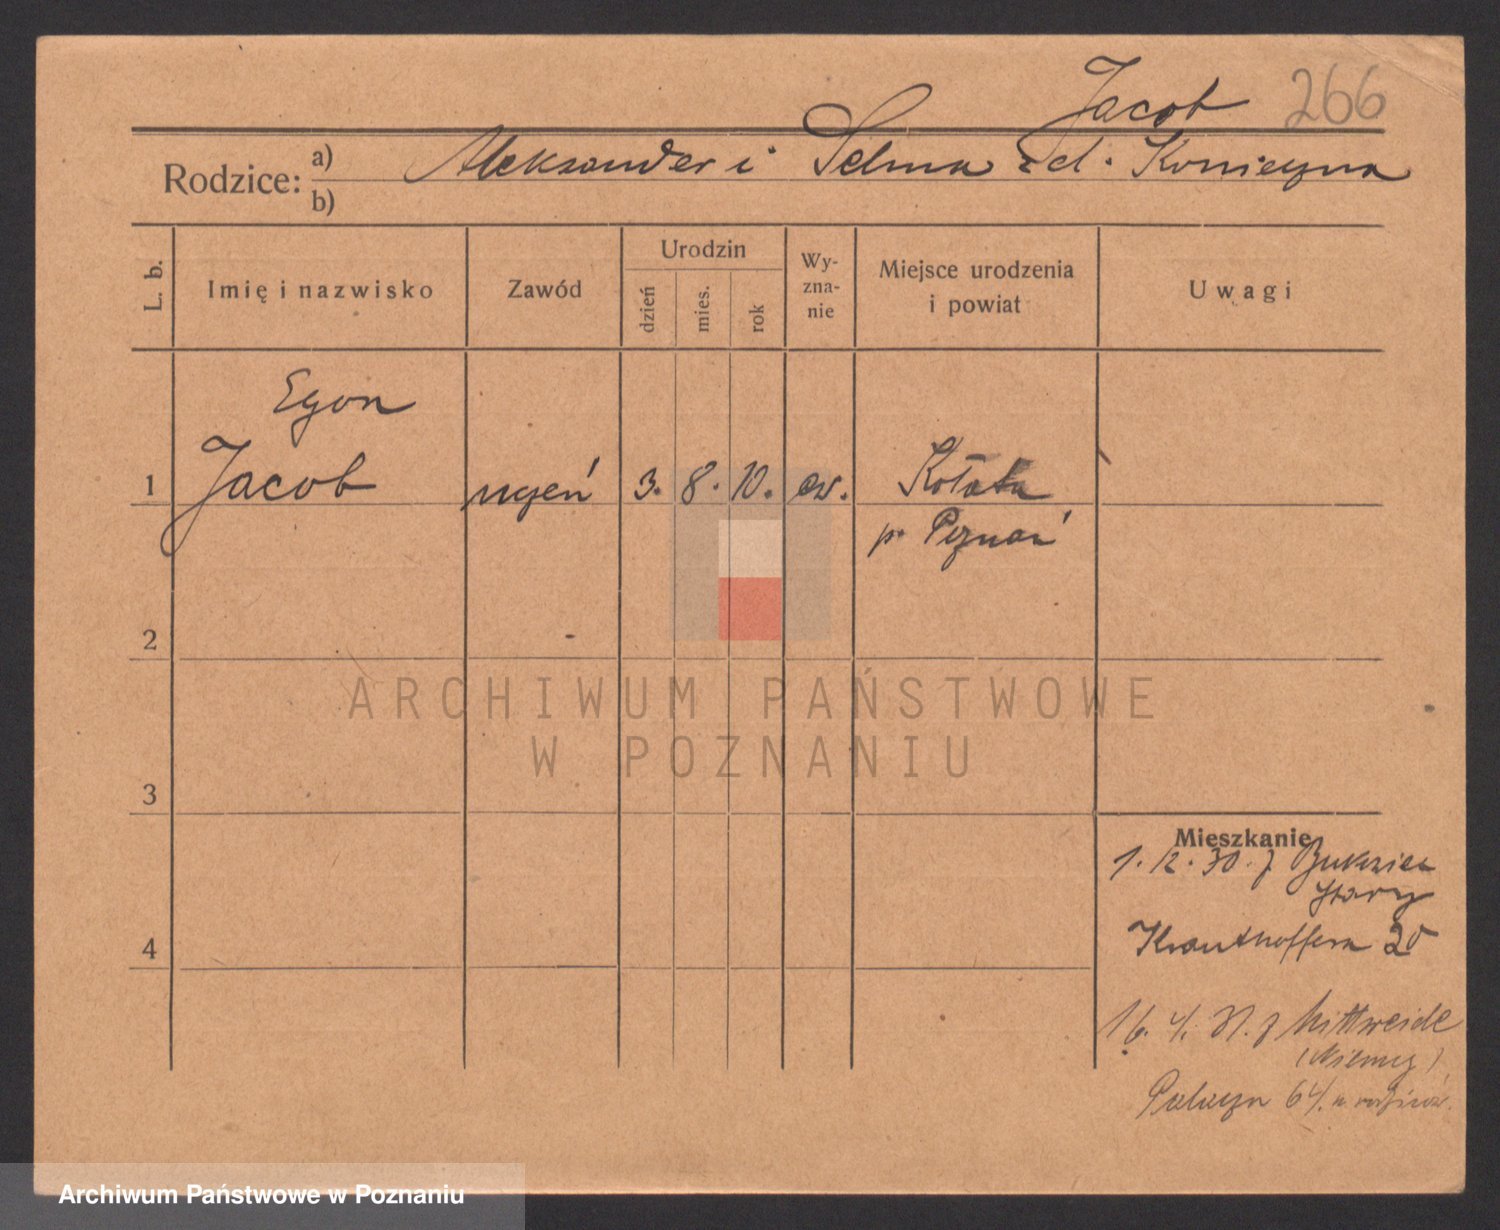 Jacob 266
Rodzice: a) Aleksander i Selma zd. Konieczna
b)
L. b. Imię i nazwisko Zawód Urodzin dzień mies. rok Wy-zna-nie Miejsce urodzenia i powiat Uwagi
Egon
1 Jacob uczeń 3. 8. 10. ew. Kołata
p. Poznań
2
ARCHIWUM PAŃSTWOWE
W POZNANIU
3
Mieszkanie
1. 12. 30. z Bukwica
Stary
4 Krauthofera 20
16. 4. 31. z Mittweide
(Niemcy)
64 u rodziców.
Archiwum Państwowe w Poznaniu